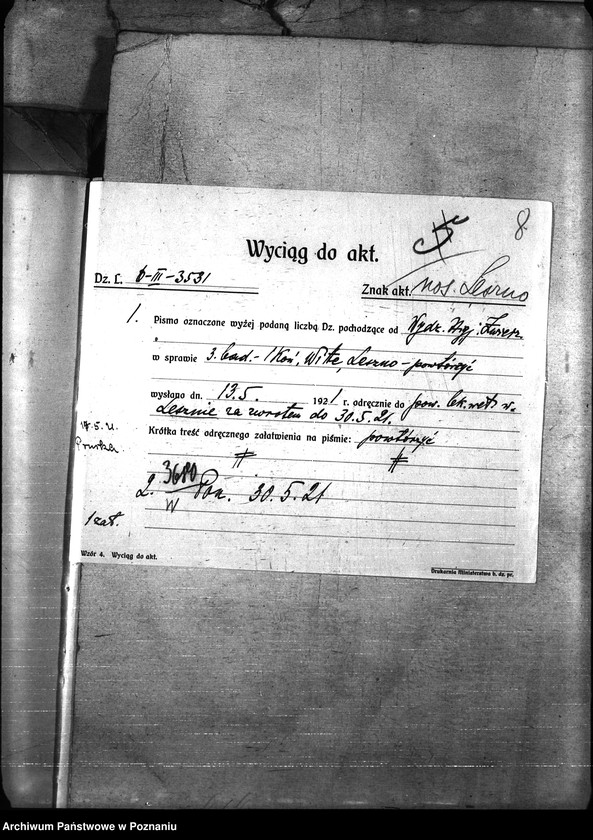 8.
Wyciąg do akt.
Dz. L. b-III-3531
Znak akt. nos. Leszno
1. Pismo oznaczone wyżej podaną liczbą Dz. pochodzące od Wydz.
w sprawie 3. bad. - 1 koń, Witke, Leszno - powtórzyć
wysłano dn. 13.5. 1921 r. odręcznie do pow. lek. wet. w.
Lesznie za zwrotem do 30.5.21.
Krótka treść odręcznego załatwienia na piśmie: powtórzyć
17.5.21.
2. 3680/W Pon. 30.5.21
1 zał.
Wzór 4. Wyciąg do akt.
Drukarnia Ministerstwa b. dz. pr.
Archiwum Państwowe w Poznaniu